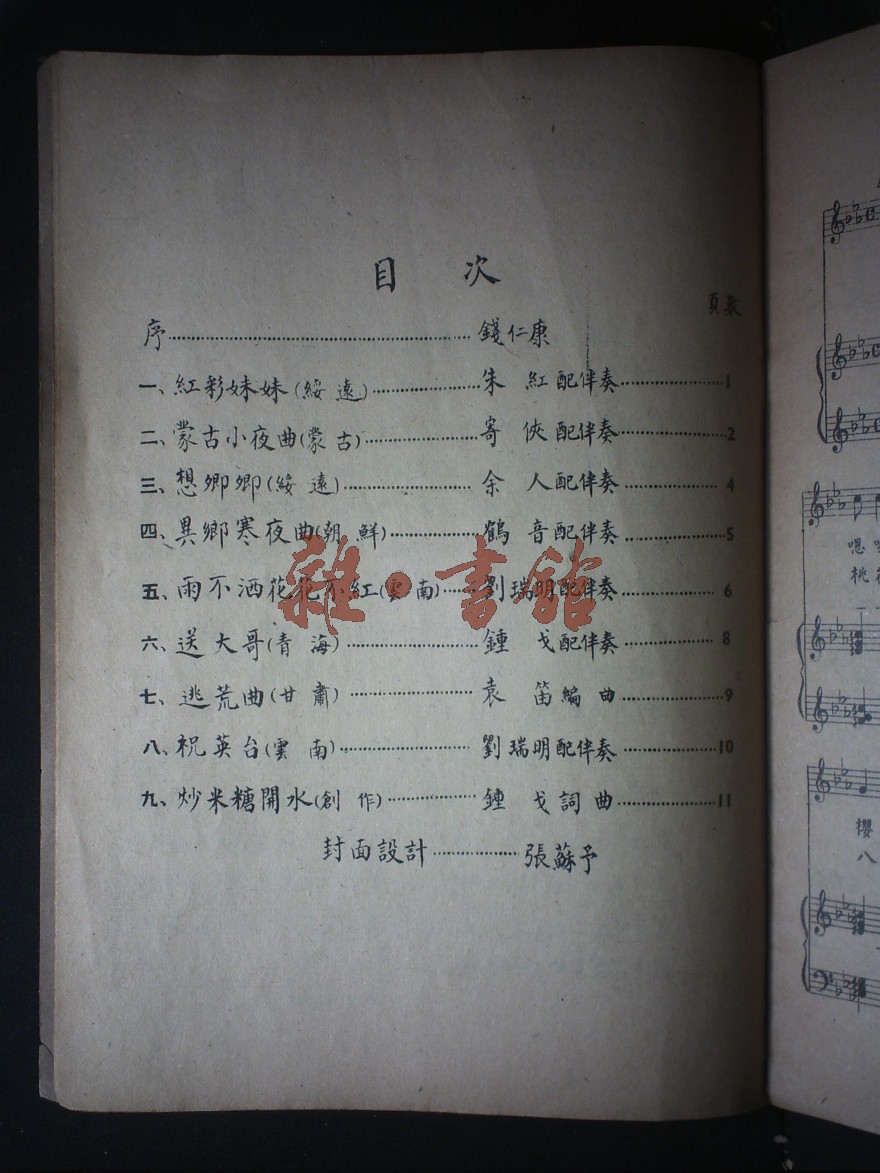 目 次
頁數
序 錢仁康
一、紅彩妹妹(綏遠) 朱 紅配伴奏 1
二、蒙古小夜曲(蒙古) 寄 俠配伴奏 2
三、想卿卿(綏遠) 余 人配伴奏 4
四、異鄉寒夜曲(朝鮮) 鶴 音配伴奏 5
五、雨不洒花花不紅(雲南) 劉瑞明配伴奏 6
六、送大哥(青海) 鍾 戈配伴奏 8
七、逃荒曲(甘肅) 袁 笛編曲 9
八、祝英台(雲南) 劉瑞明配伴奏 10
九、炒米糖開水(創作) 鍾 戈詞曲 11
封面設計 張蘇予
雜·書館
嗯
桃
櫻
八